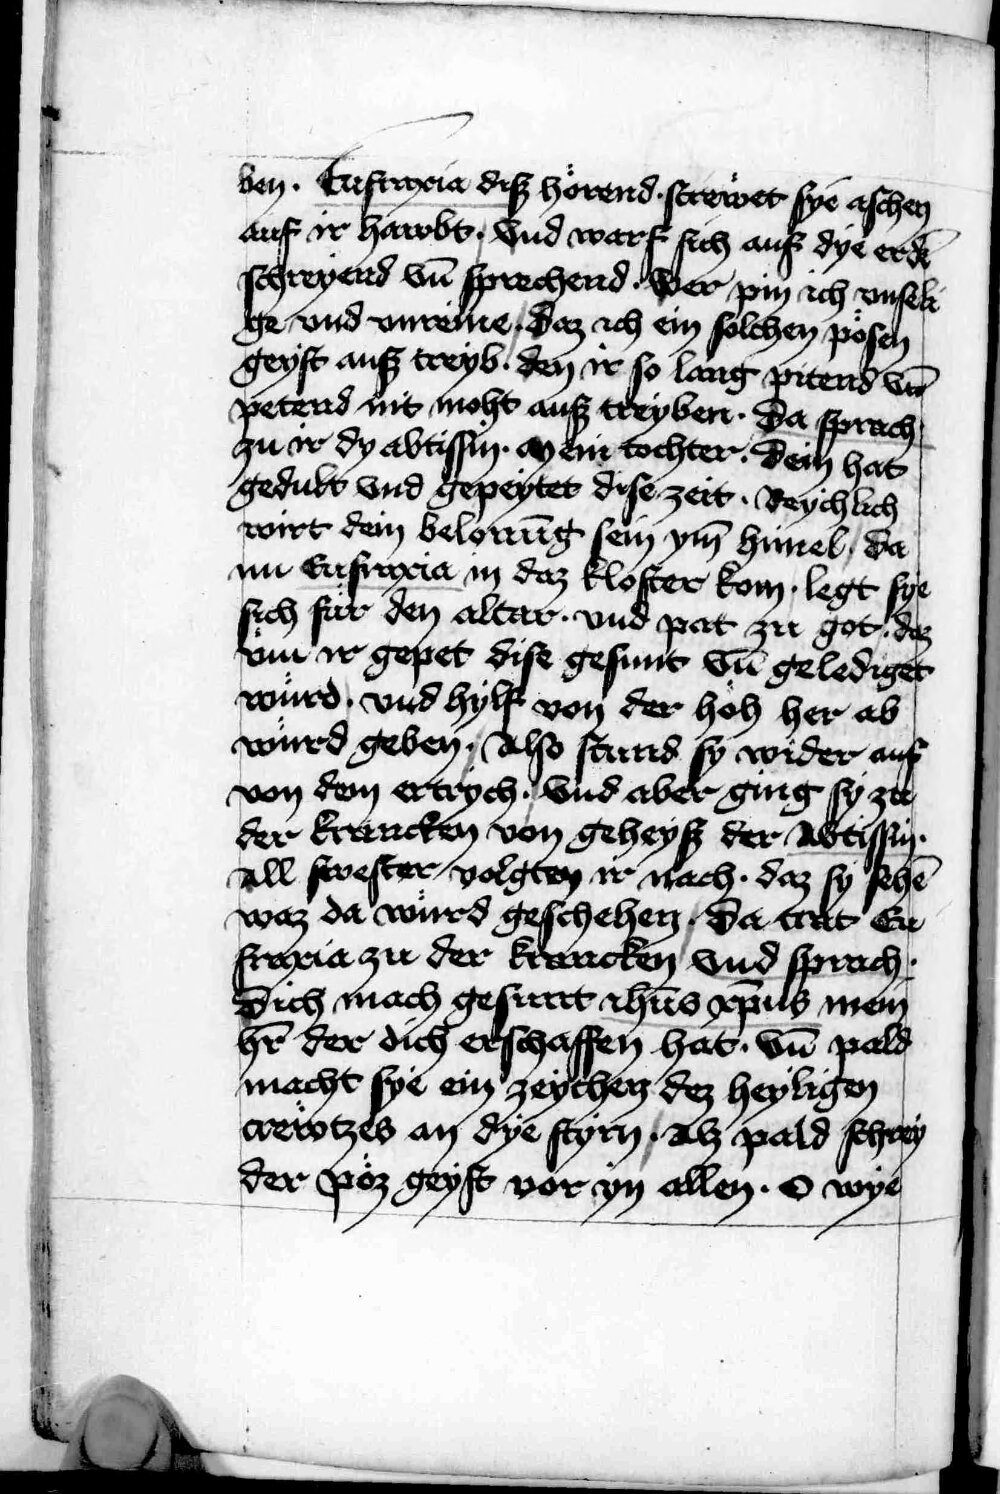 ben. Eufraxia diß hörend. strewet sye aschen
auf ir hawbt. Vnd warf sich auf dye erdē
schreyend vñ sprechend. Wer pin ich vnseli
ge vnd vnreine. Daz ich ein solchen pösen
geyst auß treyb. den ir so lang pitend vñ
petend nit moht auß treyben. Da sprach
zu ir dy abtissin. Mein tochter. Dein hat
gedult vnd gepeytet dise zeit. Reychlich
wirt dein belonūg sein ym himel. Da
nu Eufraxia in daz kloster kom. legt sye
sich für den altar. vnd pat zu got. daz
vm ir gepet dise gesunt vñ gelediget
würd. vnd hylf von der höh her ab
würd geben. Also stund sy wider auf
von dem ertrych. Vnd aber ging sy zu
der krancken von geheyß der Abtissin.
All swester volgten ir nach. daz sy sehē
waz da würd geschehen. Da trat Eu
fraxia zu der krancken vnd sprach.
Dich mach gesunt ihūs xp̄us mein
hr̄ der dich erschaffen hat. Vñ pald
macht sye ein zeychen dez heyligen
crewtzes an dye styrn. Alz pald schrey
der pöz geyst vor yn allen. O wye